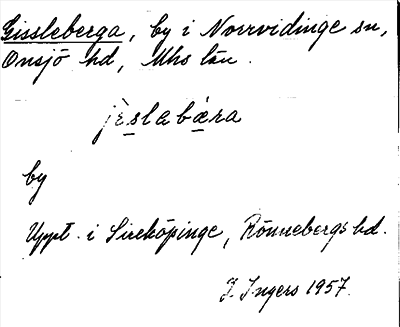 Gissleberga, by i Norrvidinge sn,
Onsjö hd, Mhs län.
jèslabæra
by
Uppt. i Sireköpinge, Rönnebergs hd.
I. Ingers 1957.